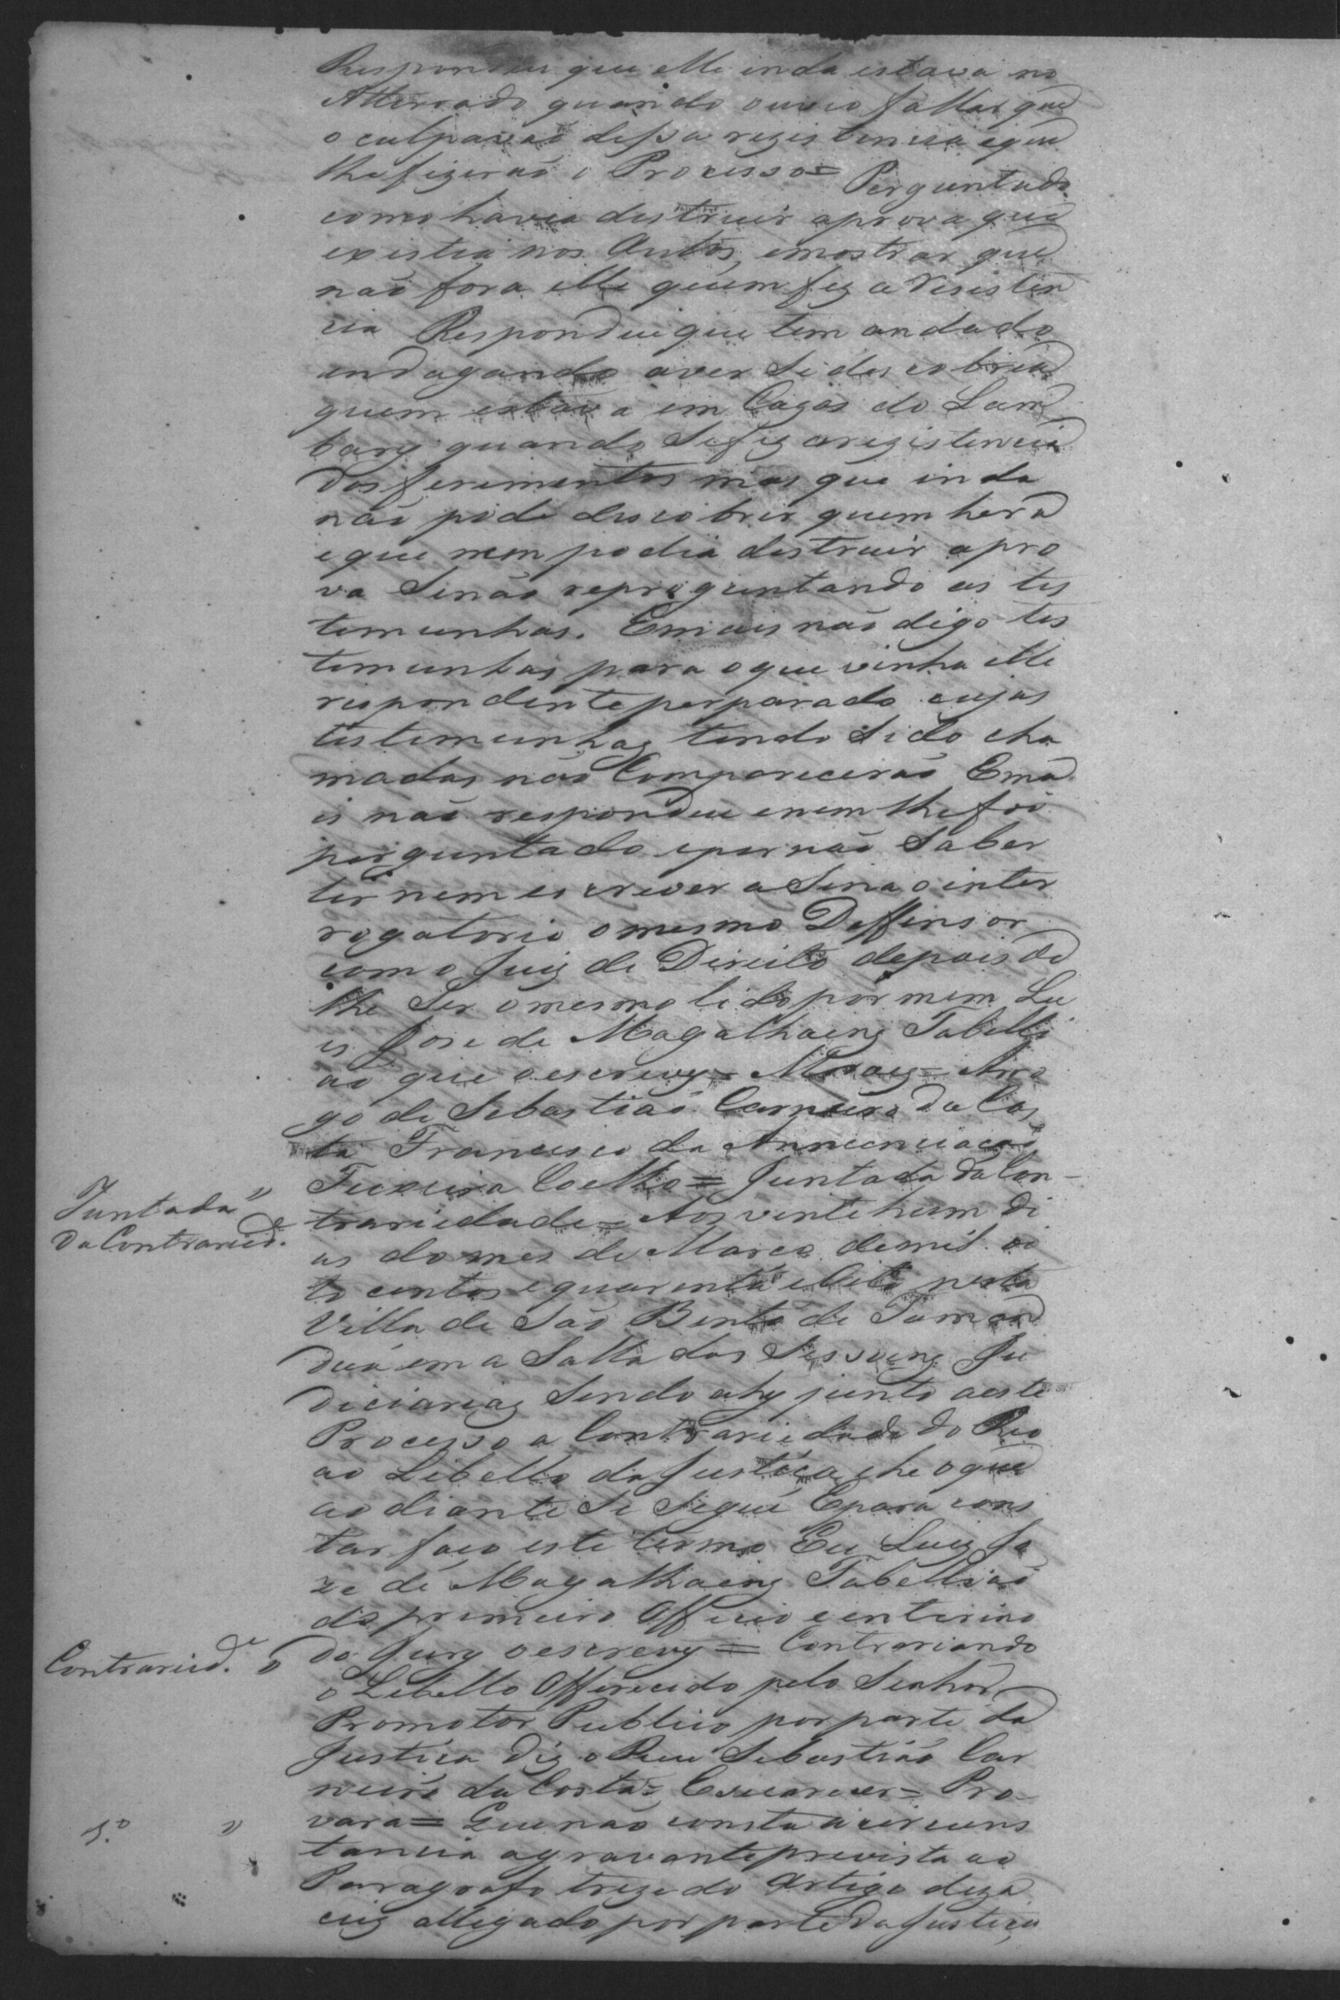 Respondeu que elle inda estava no
Atterrado quando ouvio fallar que
o culpavaõ dessa rezistencia e que
lhe fizeraõ o Processo = Perguntado
como havia destruir a prova que
existia nos Autos, e mostrar que
naõ fora elle quem fez a resisten
cia Respondeu que tem andado
endagando a ver se descobria
quem estava em Cazas do Lam
bary quando se fez a rezistencia
dos ferimentos mas que inda
naõ pode descobrir quem hera
e que nem podia destruir a pro
va Sinaõ repreguntando as tes
temunhas. E mais naõ digo tes
temunhas para o que vinha elle
respondente perparado cujas
testemunhas tendo sido cha
madas naõ Comparecerão E ma
is naõ respondeu e nem lhe foi
perguntado e por naõ Saber
ler nem escrever a Sina o inter
rogatorio o mesmo Deffensor
com o Juiz de Direito depois de
lhe Ser o mesmo lido por mim Lu
is Jose de Magalhaens Tabelli
aõ que o escrevy = Moraes = Aro
go de Sebastiaõ Carneiro da Cos
ta Francisco da Annunciacaõ
Teixeira Coelho = Juntada da Con-
trariedade = Aos vinte hum di
as do mes de Marco de mil oi
to centos e quarenta e oito nesta
Villa de Saõ Bento de Taman
duá em a Salla das Sessoens Ju
diciarias Sendo ahy junto a este
Processo a Contrariedade do Reo
ao Libello da Justica he o que
ao diante se Segue E para cons
tar faco este termo Eu Luiz Jo
ze de Magalhaens Tabelliaõ
do primeiro Officio e enterino
do Jury o escrevy = Contrariando
o Libello Offerecido pelo Senhor
Promotor Publico por parte da
Justica diz o Reu Sebastiaõ Car
neiro da Costa = Provara = Que naõ consta a circuns
tancia agravante prevista ao
Paragrafo treze do Artigo deza
ceis allegado por parte da Justica
Juntada "
da Contraried.e
Contraried.e "
1.º "